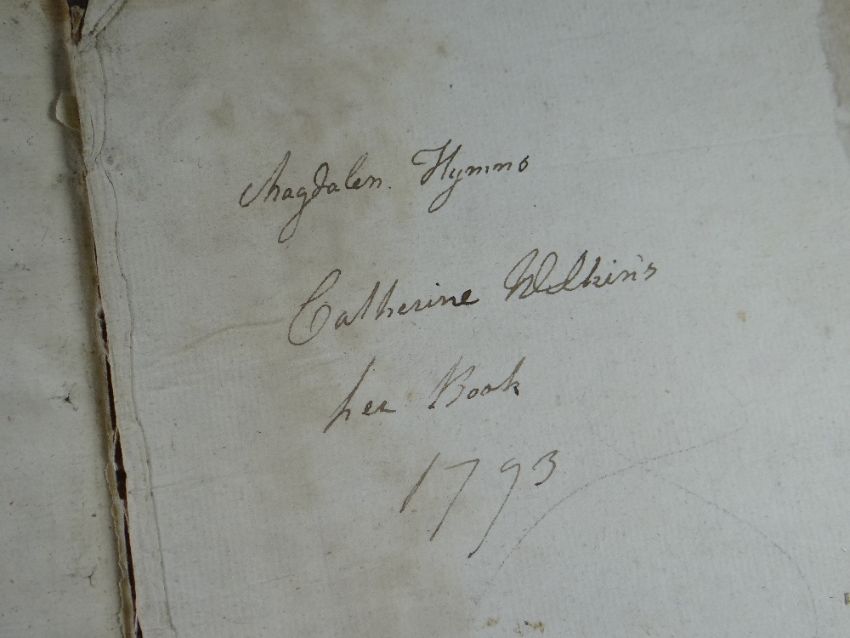 Magdalen. Hymns
Catherine Wilkins
her Book
1793